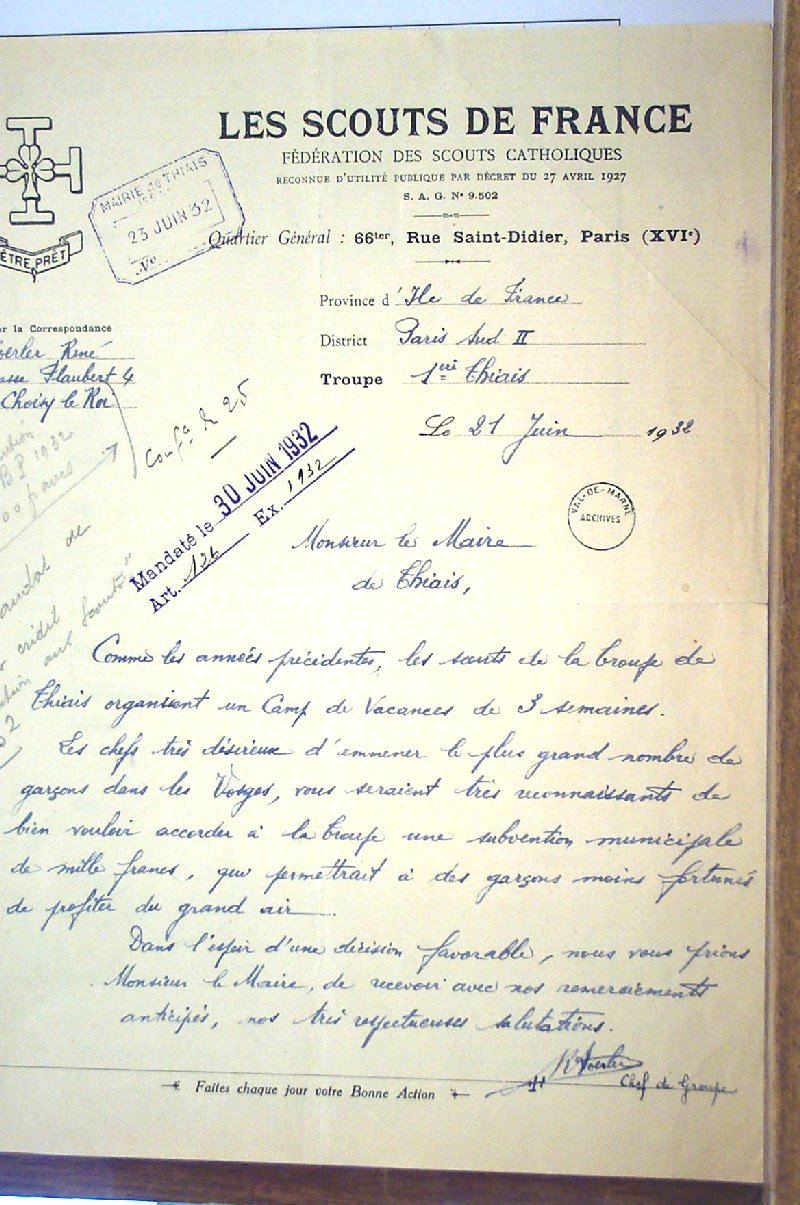 LES SCOUTS DE FRANCE
FÉDÉRATION DES SCOUTS CATHOLIQUES
RECONNUE D'UTILITÉ PUBLIQUE PAR DÉCRET DU 27 AVRIL 1927
S. A. G. N° 9.502
Quartier Général : 66ter, Rue Saint-Didier, Paris (XVIe)
MAIRIE de THIAIS
23 JUIN 32
No
ÊTRE PRÊT
Province d'Ile de France
District Paris Sud II
Troupe 1ère Thiais
Le 21 Juin 1932
la Correspondance
René
Flaubert 4
Choisy le Roi
1932
francs
crédit
aux Scouts"
Mandaté le 30 JUIN 1932
Art. 126 Ex. 1932
VAL-DE-MARNE
ARCHIVES
Monsieur le Maire
de Thiais,
Comme les années précédentes, les scouts de la troupe de
Thiais organisent un Camp de Vacances de 3 semaines.
Les chefs très désireux d'emmener le plus grand nombre de
garçons dans les Vosges, vous seraient très reconnaissants de
bien vouloir accorder à la troupe une subvention municipale
de mille francs, qui permettrait à des garçons moins fortunés
de profiter du grand air.
Dans l'espoir d'une décision favorable, nous vous prions
Monsieur le Maire, de recevoir avec nos remerciements
anticipés, nos très respectueuses salutations.
Chef de Groupe
Faites chaque jour votre Bonne Action